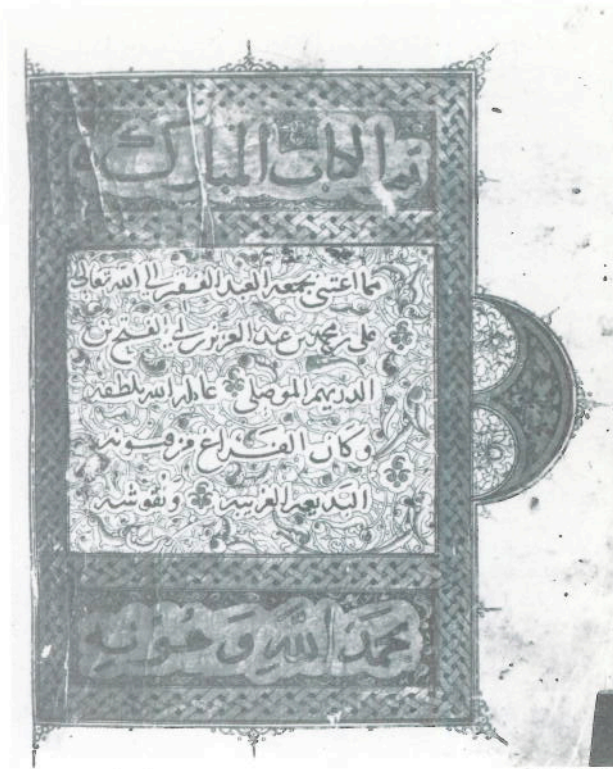 تم الكتاب المبارك
مما اعتنى بجمعه العبد الفقير الى الله تعالى
على بن محمد بن عبد العزيز بن ابى الفتح بن
الدريهم الموصلى عامله الله بلطفه
وكان الفراغ من فنونه
البديعه الغريبه ونقوشه
بحمد الله وعونه